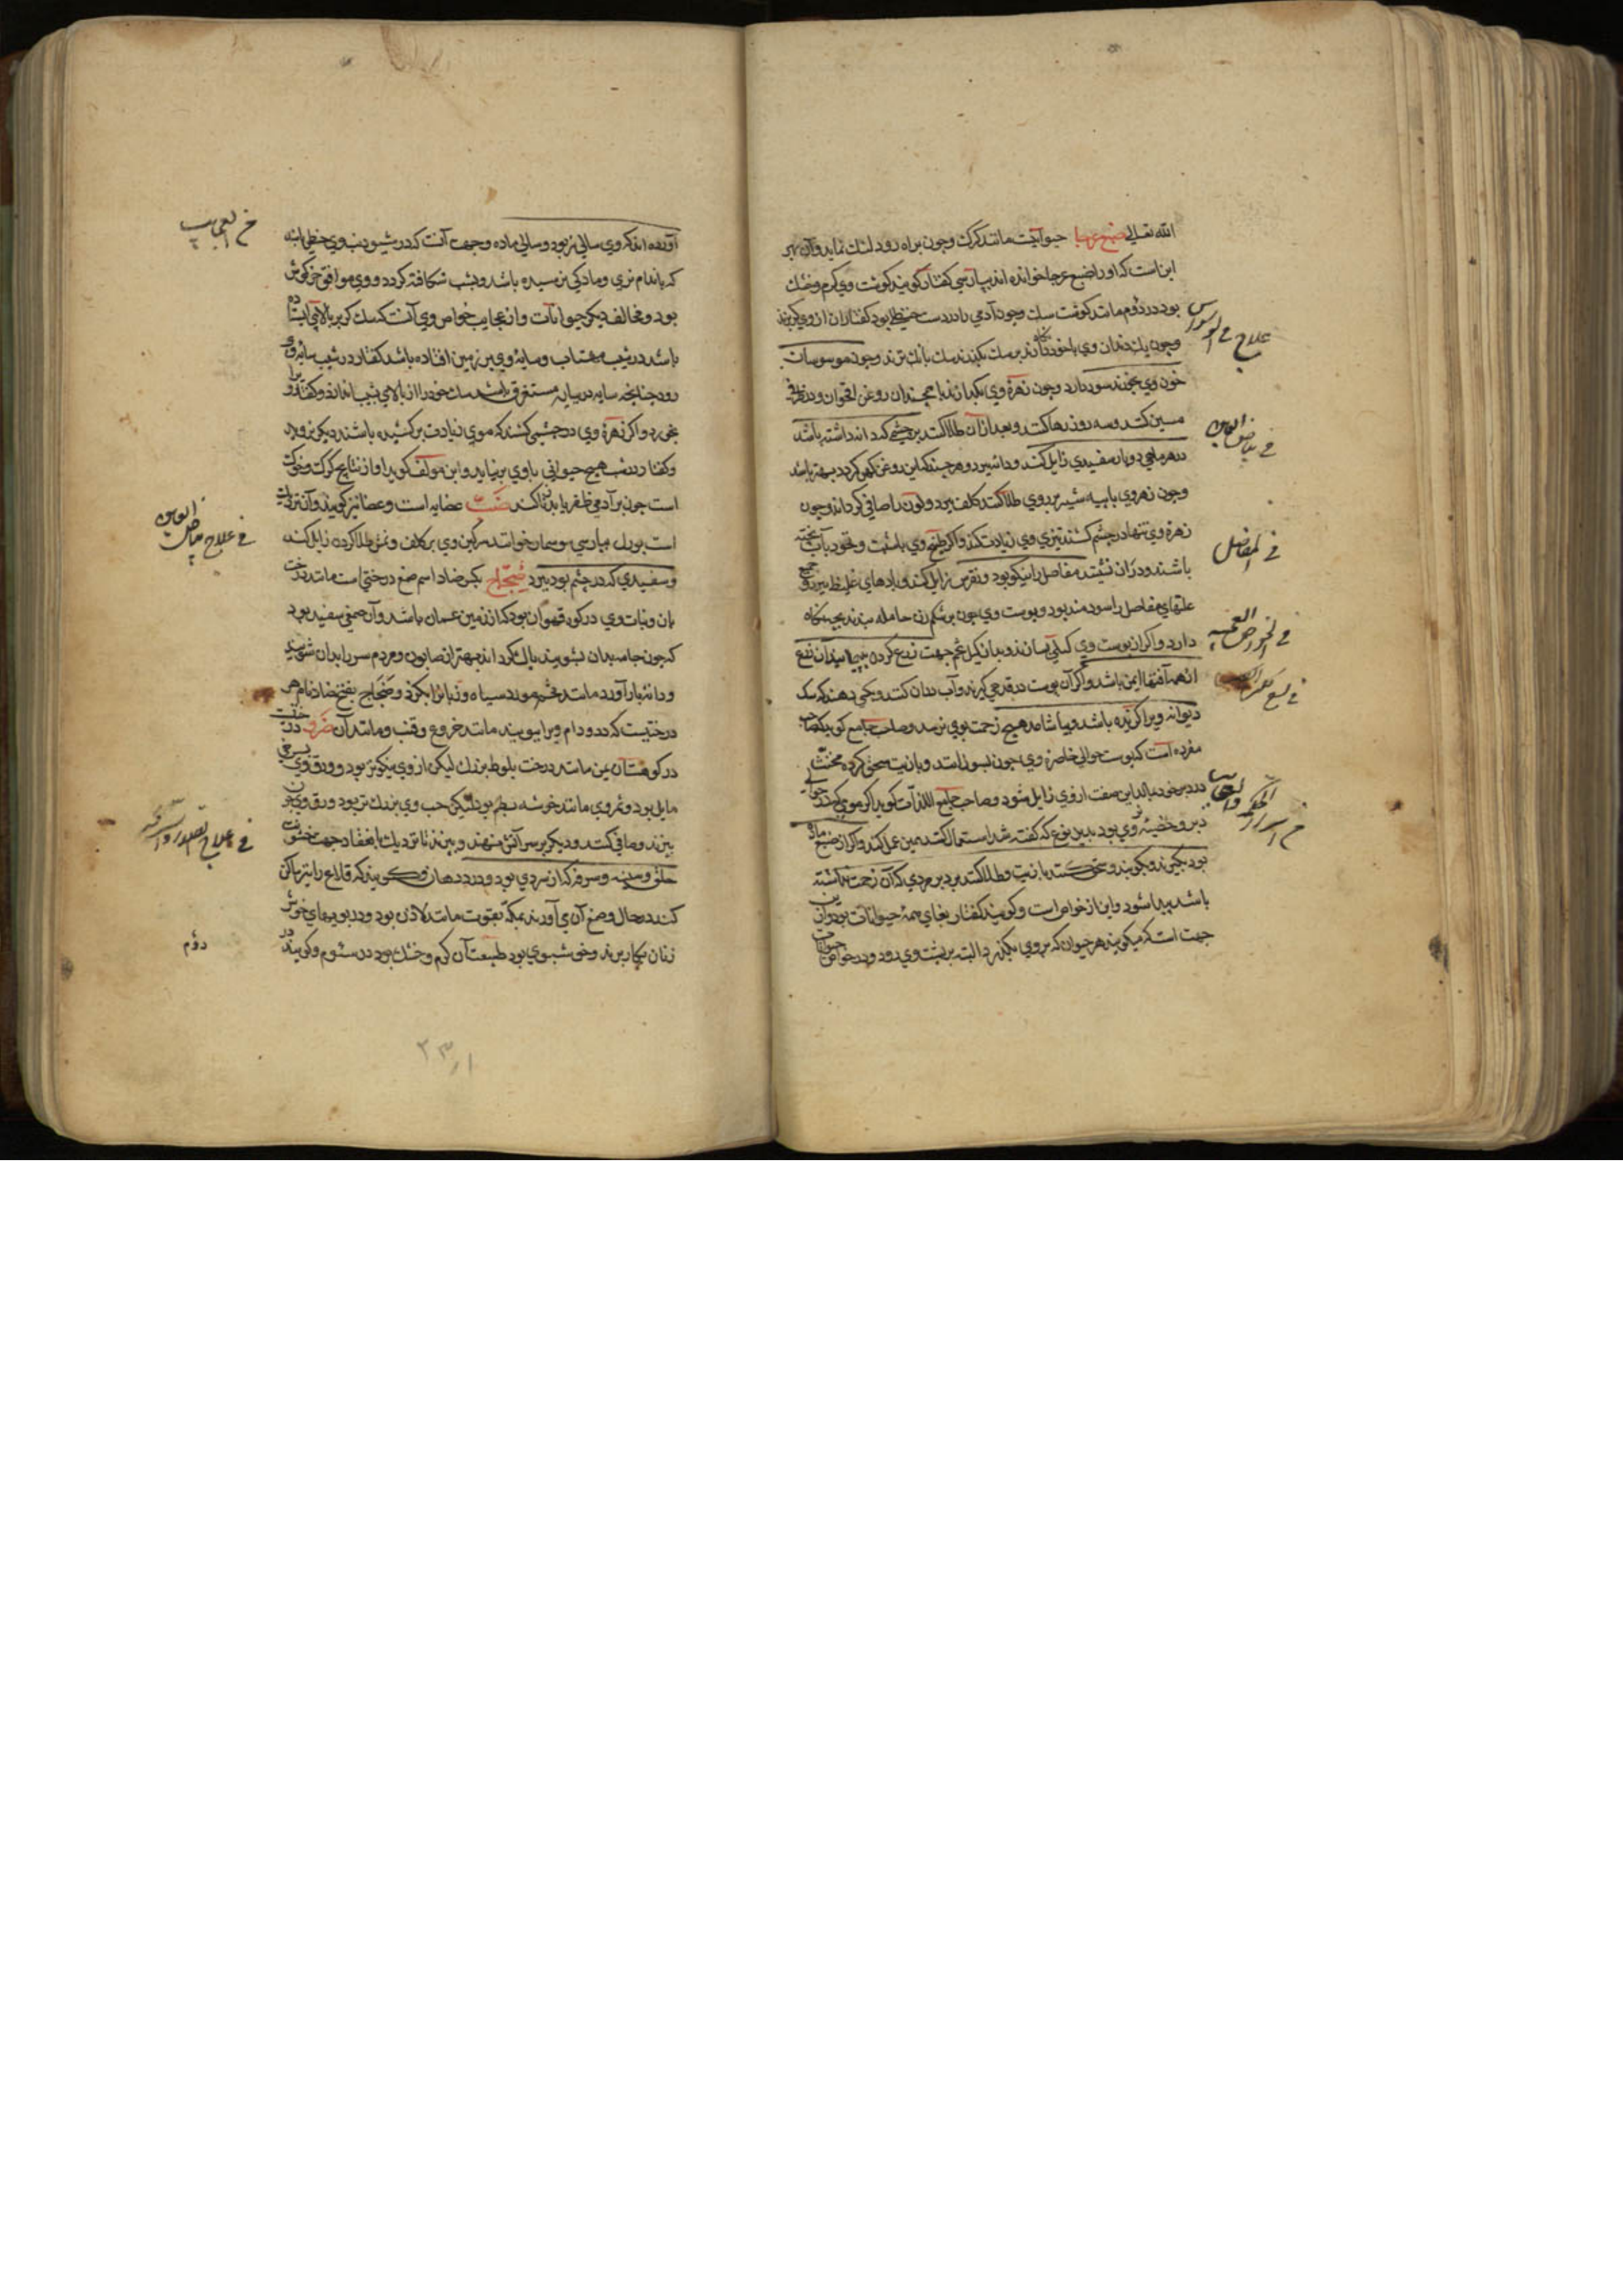 الله تعالی ضبع عرجا حیوانیست مانند کرک وچون براه رود لنک نماید واز بهر
این است که اورا ضبع عرجا خوانده اند بپارسی کفتار کویند کوشت وی کرم وخشک
بود در دوم مانند کوشت سک وچون آدمی را در دست حنظل بود کفتاران از وی بکریزند
وچون یک دندان وی با خود نکاه دارند بر سک بکذرند سک بانک نزند وچون موسوسات
خون وی بخورند سود دارد وچون زهره وی بکدازند با همچندان روغن اقحوان ودر ظرفی
مسین کنند وسه روز رها کنند وبعد از آن طلا کنند بر چشمی که درد انداشته باشد
در هر ماهی دوبار سفیدی زایل کند وداشیر وهر چند که این روغن کهن کردد بهتر باشد
وچون زهره وی با پیه شیر بر روی طلا کنند کلف ببرد ولون را صافی کرداند وچون
زهره وی تنها در چشم کشند تیزی وی زیادت کند واکر طبخ وی با شبت ونخود بآب پخته
باشند ودر آن نشینند مفاصل را نیکو بود ونقرس زایل کند وبادهای غلیظ ببرد وجمیع
علتهای مفاصل را سودمند بود وپوست وی چون بر شکم زن حامله بندند بچه نکاه
دارد واکر از پوست وی کیلی بسازند وبدان کیل تخم جهت زرع کرده بپیمایند آن زرع
از همه آفتها ایمن باشد واکر آن پوست در قدحی کیرند وآب در آن کنند وبکسی دهند که سک
دیوانه ویرا کزیده باشد وبیاشامد هیچ زحمت بوی نرسد وصاحب جامع کوید که صاحب
مفرده آست که پوست حوالی خاصره وی چون بسوزانند وبا زیت سحق کرده مخنث
در دبر خود بمالد این صفت از وی زایل شود وصاحب جامع اللذات کوید اکر موی که در حوالی
دبر وخصیه وی بود بدین نوع که کفته شد استعمال کنند همین عمل کند واکر از ضبع ماده
بود بکیرند وبکوبند وسحق کنند با زیت وطلا کنند بر دبر مردی که آن زحمت نداشته
باشد پیدا شود واین از خواص است وکویند کفتار بغای همه حیوانات بود واز این
جهت است که میکویند هر حیوان که بر وی بکذرد البته بر پشت وی رود ودر خواص حیوانات
علاج فی الوسواس
فی بیاض العین
فی المفاصل
آورده اند که وی سالی نر بود وسالی ماده وجهت آنست که در شیب ذنب وی خطی باشد
که باندام نری ومادکی نرسیده باشد وبشب شکافته کردد ووی موافق خرکوش
بود ومخالف دیکر حیوانات واز عجایب خواص وی آنست که سک کر بر بالایی ایستاده
باشد در شب مهتاب وسایه وی بر زمین افتاده باشد کفتار در شیب سایه وی
رود چنانچه سایه در سایه مستغرق باشد سک خود را از بالا وی بشیب اندازد وکفتار ویرا
بخورد واکر زهره وی در چشمی کشند که موی زیادت بر کشیده باشند دیکر نروید
وکفتار در شب هیچ حیوانی با وی بر نیاید واین مولف کوید او از نتایج کرک وخوک
است چون بر آدمی ظفر یابد هلاک کند ضب عضایه است وعضا نیز کویند وآن نزدیک
است بورل بپارسی سوسمار خوانند سرکین وی بر کلف ونمش طلا کردن زایل کند
وسفیدی که در چشم بود ببرد ضجاج بکسر ضاد اسم صمغ درختی است مانند درخت
بان ونبات وی در کوه قهوان بود که از زمین عمان باشد وآن صمغی سفید بود
که چون جامه بدان بشویند پاک کرداند بهتر از صابون ومردم سر را بدان شویند
ودانه بار آورد مانند تخم مورد سیاه وزبانرا بکزد وضجاج بفتح ضاد نام هر
درختیست که دد ودام ویرا بپویند مانند خروع وقنب ومانند آن ضرو درخت
در کوهستان یمن مانند درخت بلوط بزرک لیکن از وی نیکوتر بود وورق وی بسرخی
مایل بود وثمر وی مانند خوشه بطم بود لیکن حب وی بزرک تر بود ورق وی چون
بپزند وصافی کنند ودیکر بر سر آتش نهند وبپزند تا نزدیک بانعقاد جهت خشونت
حلق وسینه وسرفه که از سردی بود ودرد دهان وکویند که قلاع را نیز ساکن
کند در حال وصمغ آن می آورند بمکه بقوت مانند لاذن بود ودر بویهای خوش
زنان بکار برند وخوشبوی بود طبیعت آن کرم وخشک بود در سئوم وکویند در
دوم
فی علاج بیاض العین
۲۳۱